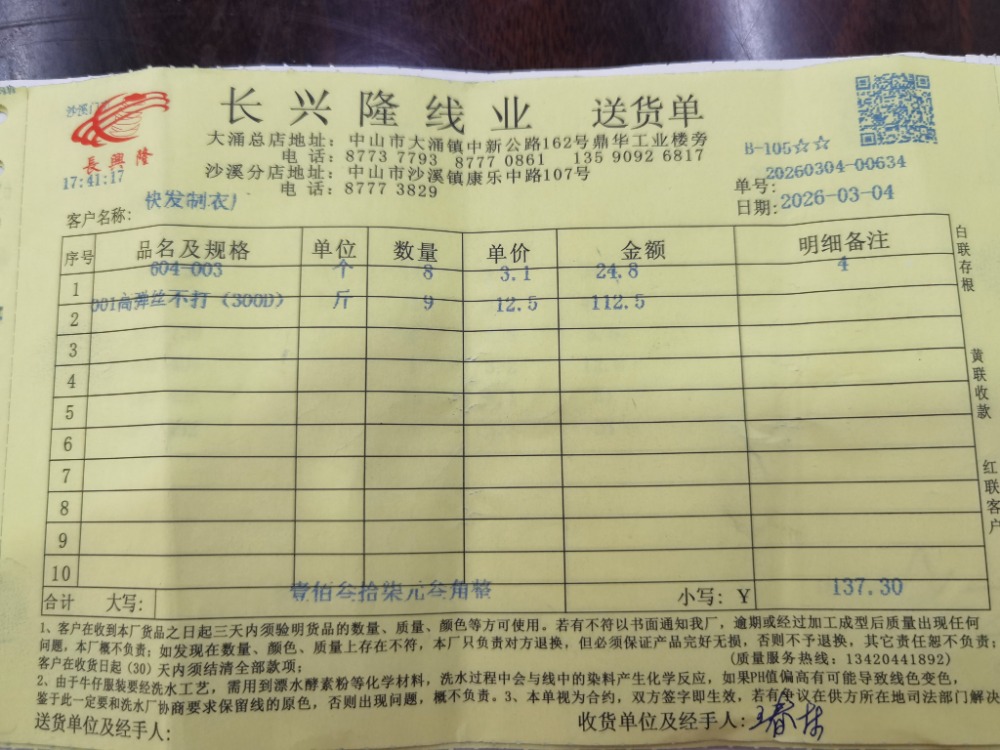 沙溪门
長興隆
17:41:17
长兴隆线业 送货单
大涌总店地址:中山市大涌镇中新公路162号鼎华工业楼旁
电话:8773 7793 8777 0861 135 9092 6817
沙溪分店地址:中山市沙溪镇康乐中路107号
电话:8777 3829
B-105☆☆
单号:20260304-00634
日期:2026-03-04
客户名称:快发制衣厂
序号 品名及规格 单位 数量 单价 金额 明细备注
1 604-003 个 8 3.1 24.8 4
2 001高弹丝不打(300D) 斤 9 12.5 112.5
3
4
5
6
7
8
9
10
合计 大写:壹佰叁拾柒元叁角整 小写:¥ 137.30
白联存根
黄联收款
红联客户
1、客户在收到本厂货品之日起三天内须验明货品的数量、质量、颜色等方可使用。若有不符以书面通知我厂,逾期或经过加工成型后质量出现任何
问题,本厂概不负责;如发现在数量、颜色、质量上存在不符,本厂只负责对方退换,但必须保证产品完好无损,否则不予退换,其它责任恕不负责;
客户在收货日起(30)天内须结清全部款项; (质量服务热线:13420441892)
2、由于牛仔服装要经洗水工艺,需用到漂水酵素粉等化学材料,洗水过程中会与线中的染料产生化学反应,如果PH值偏高有可能导致线色变色,
鉴于此一定要和洗水厂协商要求保留线的原色,否则出现问题,概不负责。3、本单视为合约,双方签字即生效,若有争议在供方所在地司法部门解决
送货单位及经手人: 收货单位及经手人: